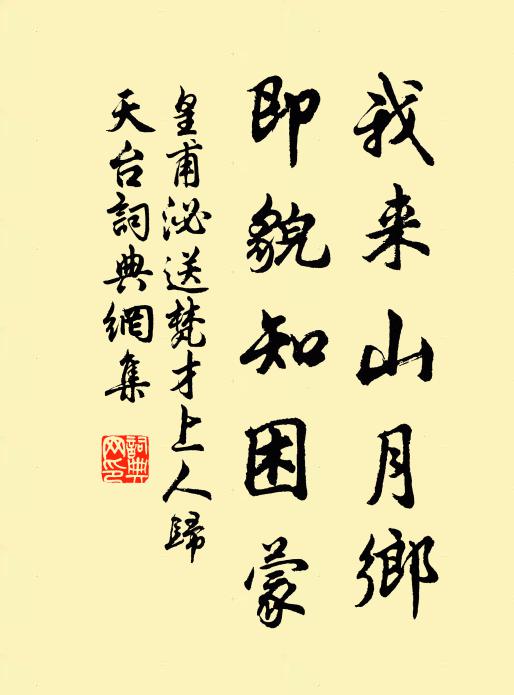 我来山月鄉
即貌知困蒙
皇甫泌送梵才上人歸
天台詞典網集
詞典网印